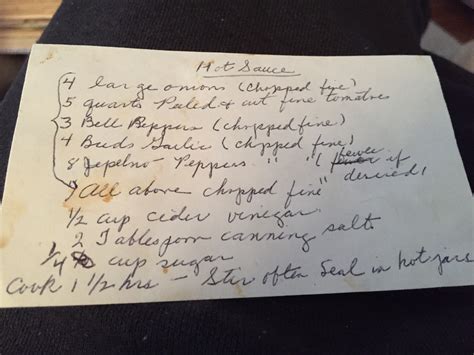 Hot Sauce
4 large onions (chopped fine)
5 quarts Peled & cut fine tomatoes
3 Bell Peppers (chopped fine)
4 Buds Garlic (chopped fine)
8 Jepelno - Peppers " " (fewer if desired)
"All above chopped fine"
1/2 cup cider vinegar
2 Tablespoon canning salt
1/4 cup sugar
Cook 1 1/2 hrs - Stir often Seal in hot jars